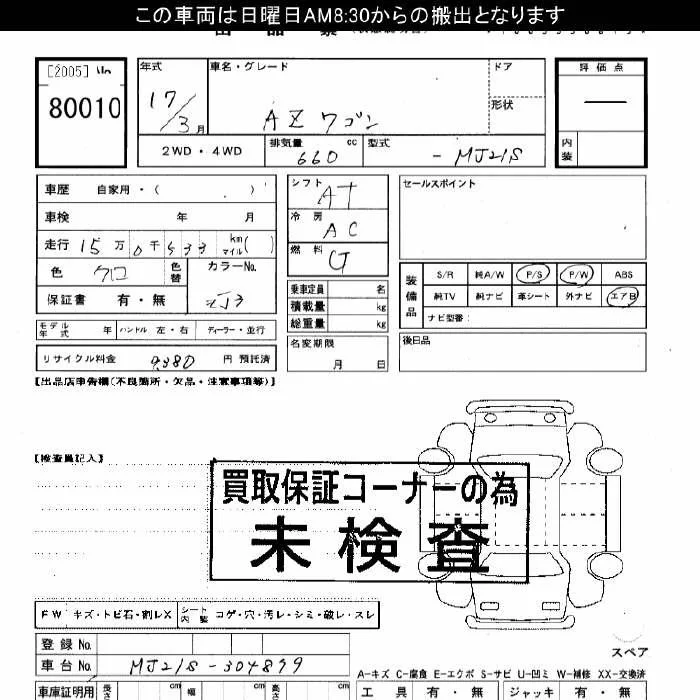 この車両は日曜日AM8:30からの搬出となります
[2005]
80010
年式 車名・グレード ドア 評価点
17/3月 AZ ワゴン 形状 —
2WD・4WD 排気量 cc 型式 内装
660 - MJ21S
車歴 自家用・( ) シフト AT セールスポイント
車検 年 月 冷房 AC
走行 15万0千533 km マイル( ) 燃料 G
色 クロ 色替 カラーNo. ZJ3
保証書 有・無
乗車定員 名
積載量 kg
総重量 kg
装備品 S/R 純A/W P/S P/W ABS
純TV 純ナビ 革シート 外ナビ エアB
ナビ型番:
モデル年式 年 ハンドル 左・右 ディーラー・並行
名変期限 月 日
後日品
リサイクル料金 9,380 円 預託済
【出品店申告欄(不良箇所・欠品・注意事項等)】
【検査員記入】
買取保証コーナーの為
未検査
FW キズ・トビ石・割レX シート内装 コゲ・穴・汚レ・シミ・破レ・スレ
登録 No.
車台 No. MJ21S-304899
スペア
A-キズ C-腐食 E-エクボ S-サビ U-凹ミ W-補修 XX-交換済
車庫証明用 長さ cm 幅 cm 高さ cm 工具 有・無 ジャッキ 有・無